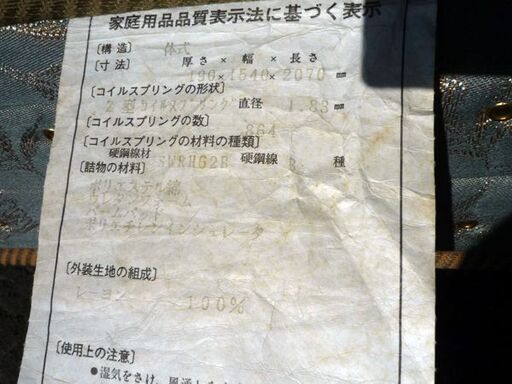 家庭用品品質表示法に基づく表示
〔構 造〕 体式
〔寸 法〕 厚さ × 幅 × 長さ
190×1540×2070 mm
〔コイルスプリングの形状〕
Z 型コイルスプリング 直径 1.83 mm
〔コイルスプリングの数〕
864
〔コイルスプリングの材料の種類〕
硬鋼線材 SWRH62B 硬鋼線 種
〔詰物の材料〕
ポリエステル綿
ウレタンフォーム
パームパッド
ポリエチレンインシュレータ
〔外装生地の組成〕
レーヨン 100%
〔使用上の注意〕
●湿気をさけ、風通しを